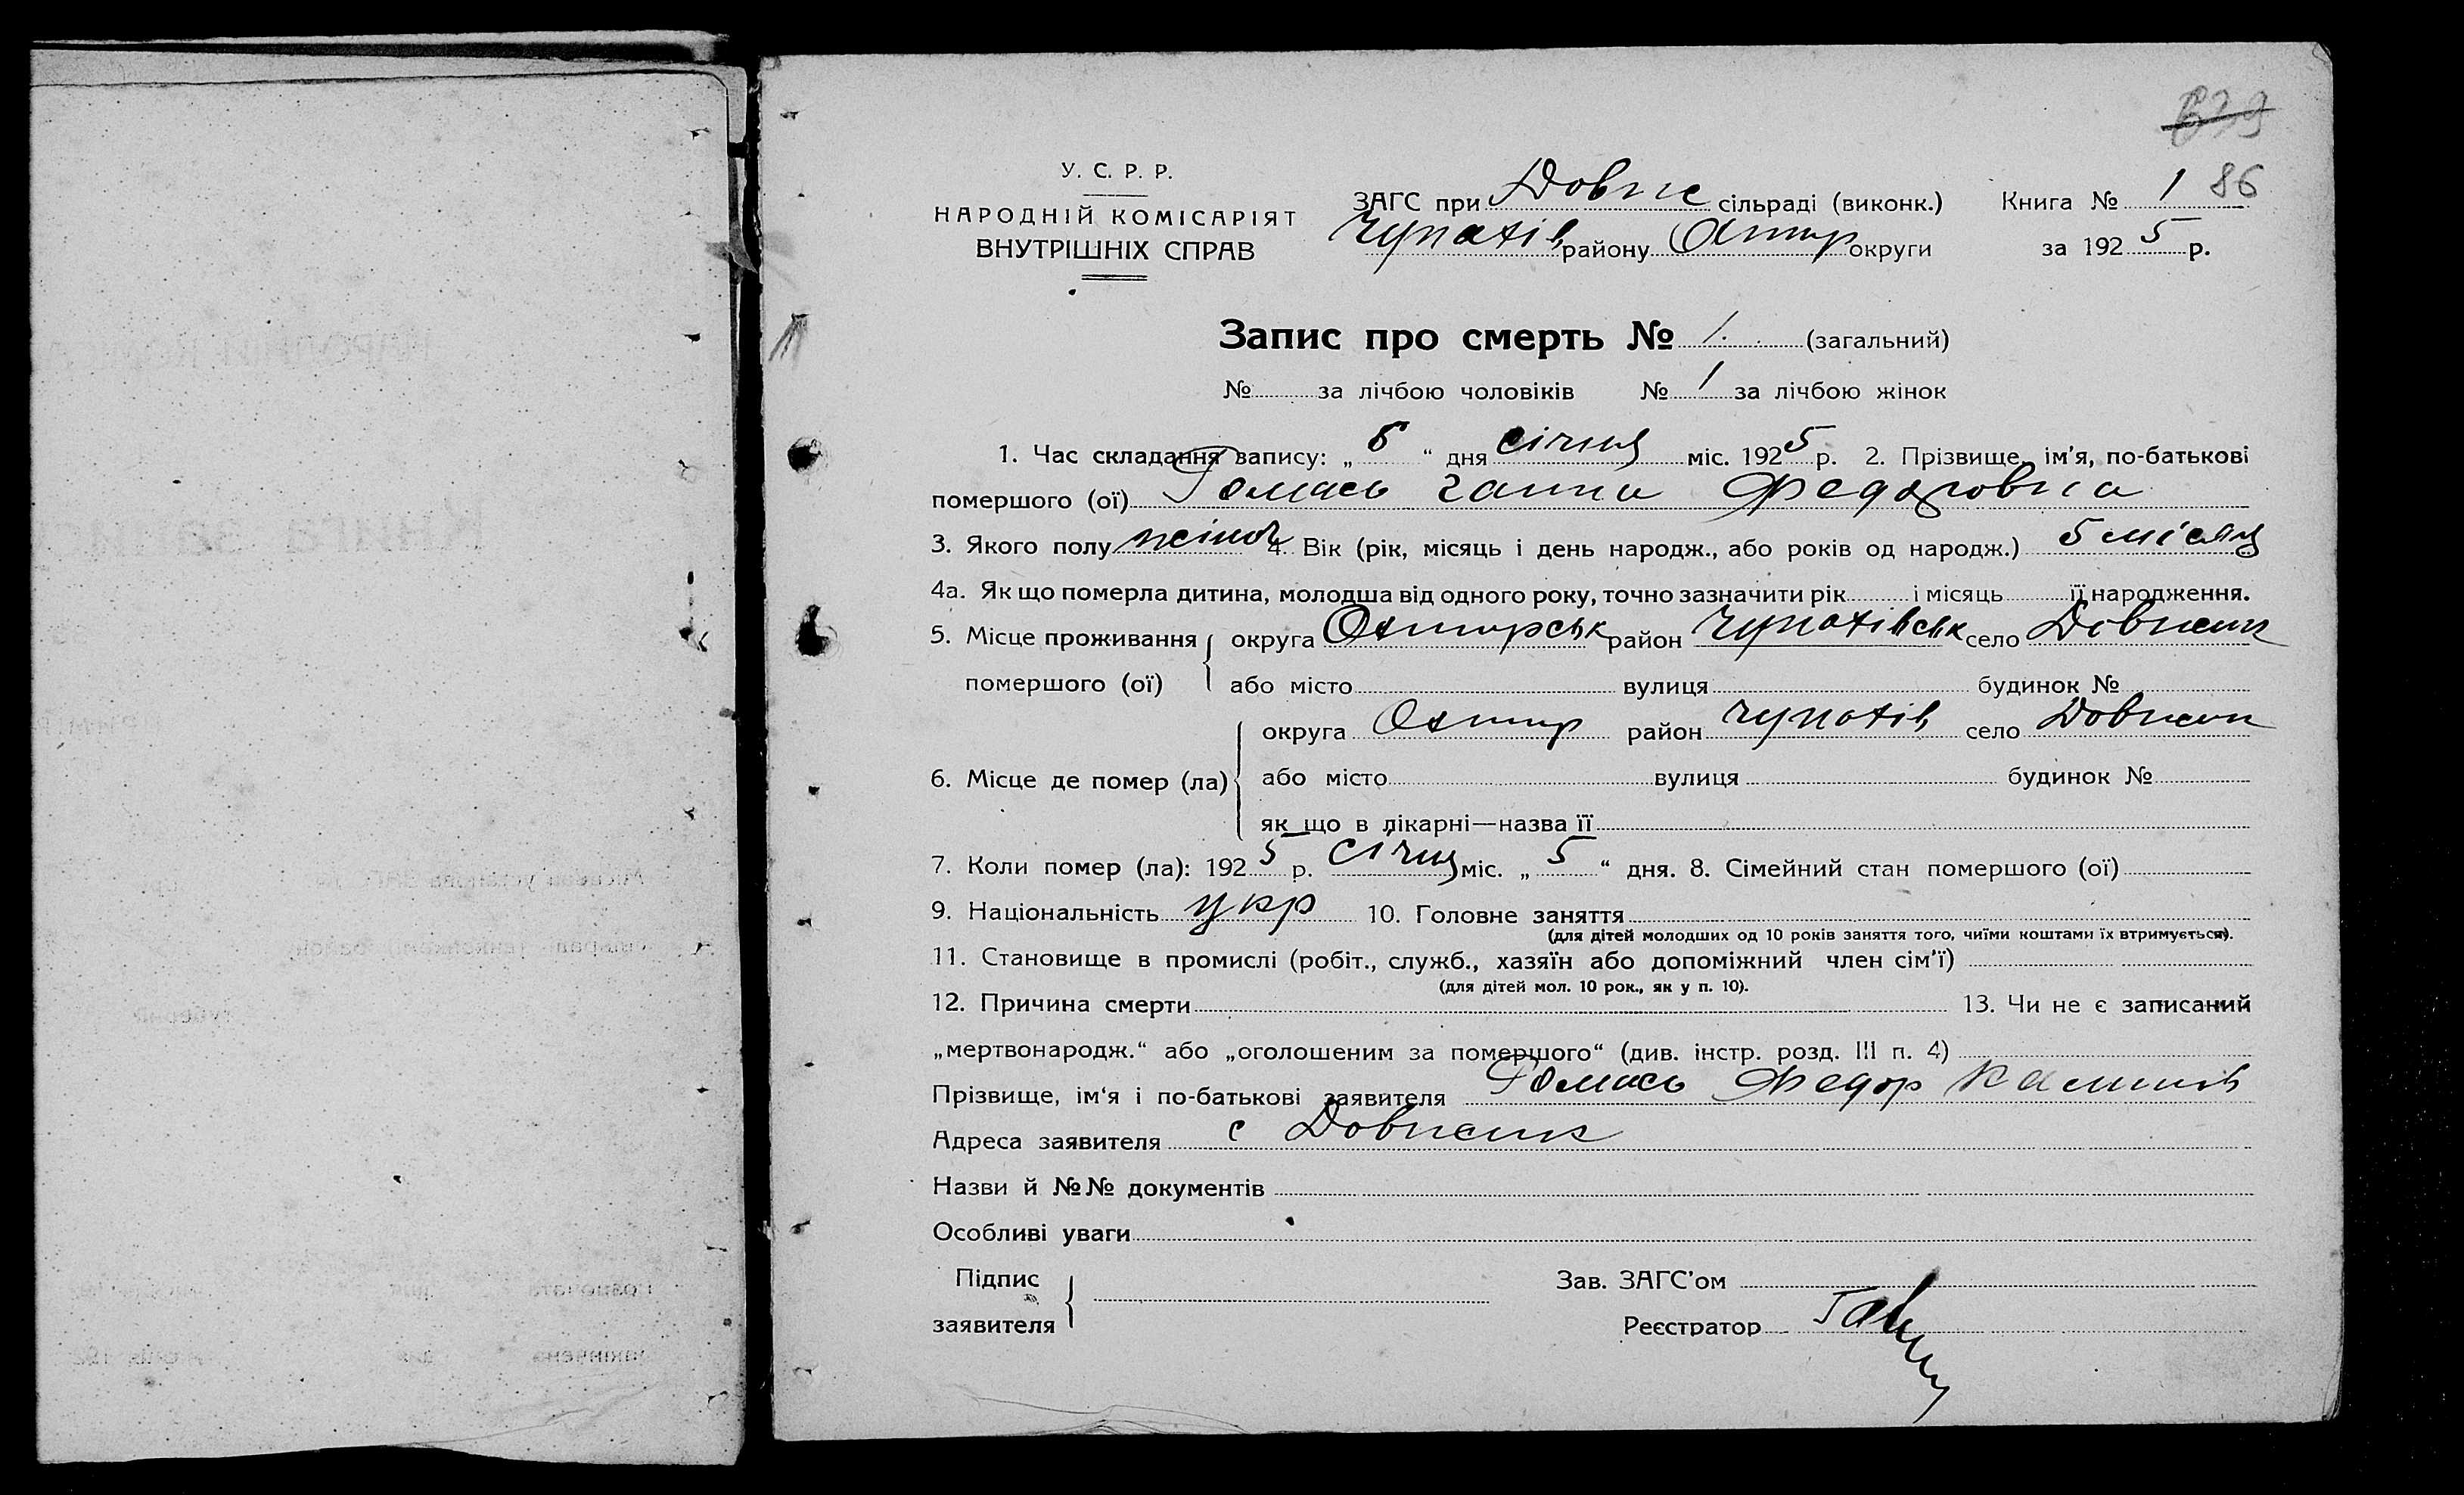 86
У. С. Р. Р.
НАРОДНІЙ КОМІСАРІЯТ
ВНУТРІШНІХ СПРАВ
ЗАГС при Довж сільраді (виконк.) Книга № 1
Чупахів району Охтир округи за 1925 р.
Запис про смерть № 1. (загальний)
№ за лічбою чоловіків № 1 за лічбою жінок
1. Час складання запису: „ 6 “ дня січня міс. 1925 р. 2. Прізвище, ім’я, по-батькові
помершого (ої) Томась Ганна Федоровна
3. Якого полу жіноч 4. Вік (рік, місяць і день народж., або років од народж.) 5 місяц
4а. Як що померла дитина, молодша від одного року, точно зазначити рік і місяць її народження.
5. Місце проживання округа Охтирськ район Чупахівськ село Довжик
помершого (ої) або місто вулиця будинок №
округа Охтир район Чупахів село Довжик
6. Місце де помер (ла) або місто вулиця будинок №
як що в лікарні—назва її
7. Коли помер (ла): 1925 р. січня міс. „ 5 “ дня. 8. Сімейний стан помершого (ої)
9. Національність укр 10. Головне заняття
(для дітей молодших од 10 років заняття того, чиїми коштами їх втримується).
11. Становище в промислі (робіт., служб., хазяїн або допоміжний член сім’ї)
(для дітей мол. 10 рок., як у п. 10).
12. Причина смерти 13. Чи не є записаний
„мертвонародж.“ або „оголошеним за помершого“ (див. інстр. розд. III п. 4)
Прізвище, ім‘я і по-батькові заявителя Томась Федор
Адреса заявителя с Довжик
Назви й №№ документів
Особливі уваги
Підпис Зав. ЗАГС’ом
заявителя Реєстратор